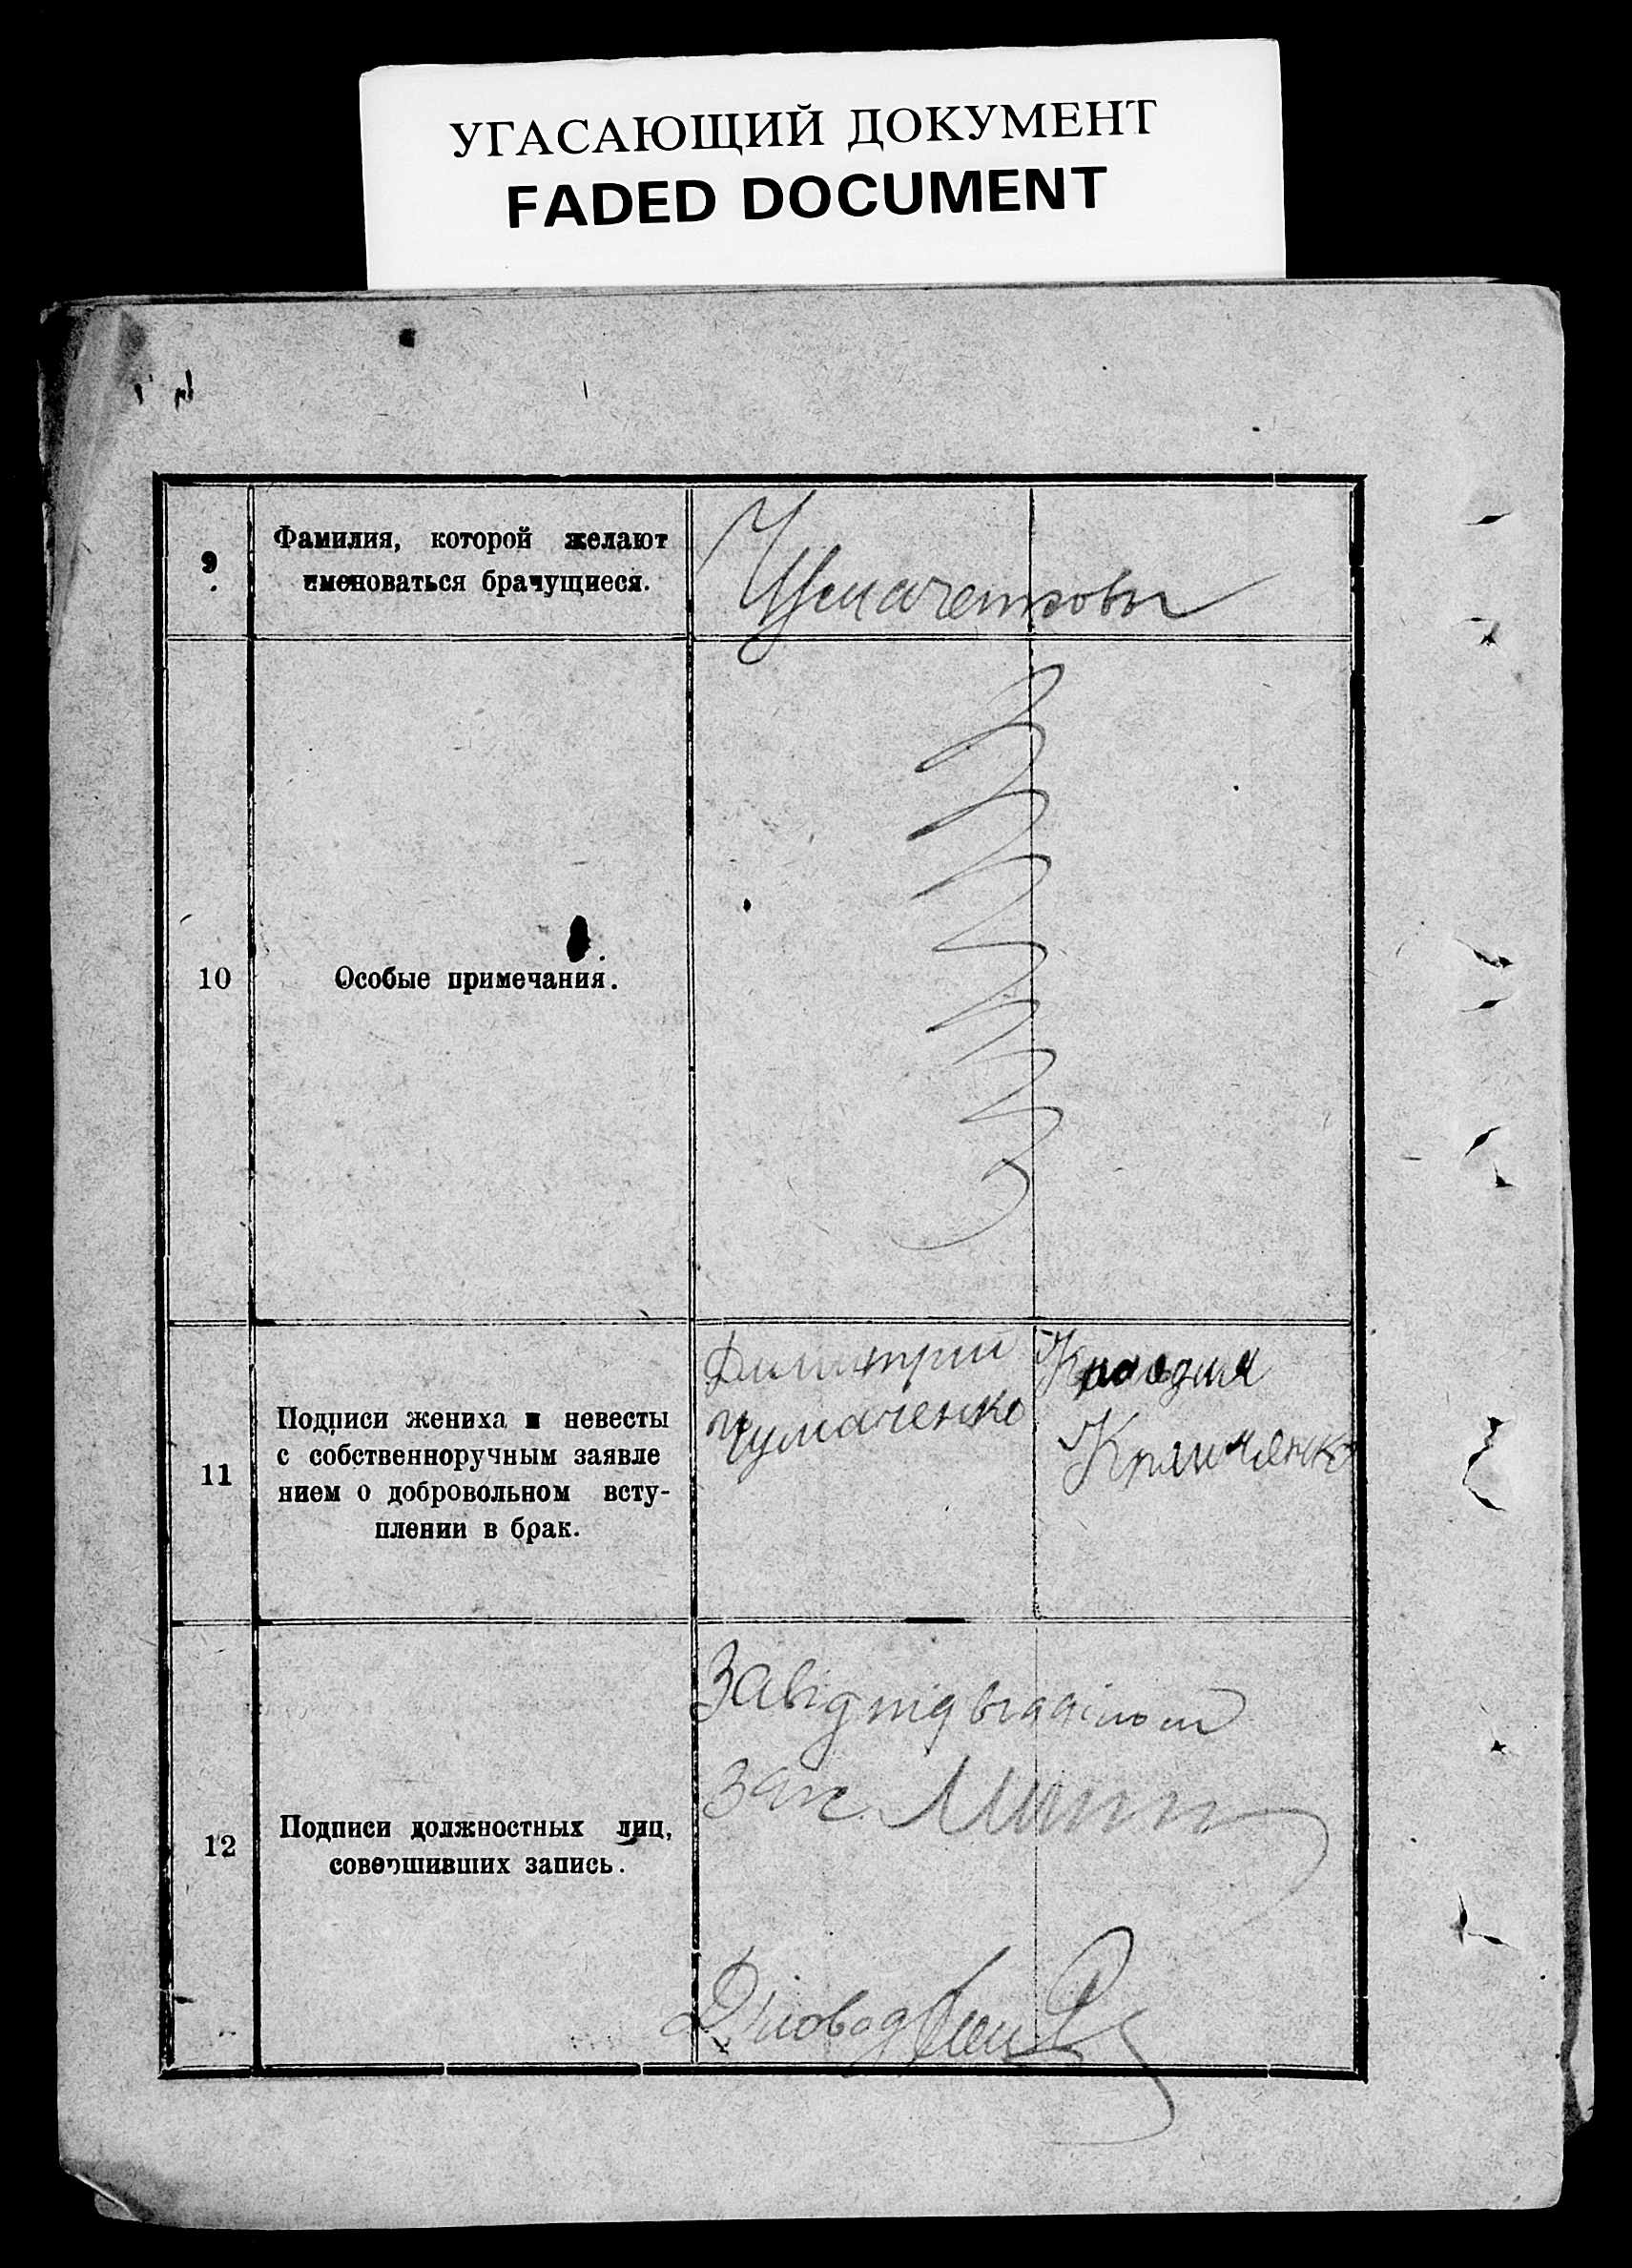 УГАСАЮЩИЙ ДОКУМЕНТ
FADED DOCUMENT
9
Фамилия, которой желают
именоваться брачущиеся.
10
Особые примечания.
11
Подписи жениха и невесты
с собственноручным заявле
нием о добровольном всту-
плении в брак.
Димитрий
Чумаченко
Клавдия
12
Подписи должностных лиц,
совершивших запись.
Завід підвідділом
Загс
Діловод